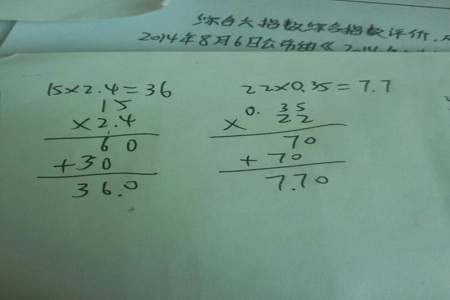 综合大指数综合指数评价,
2014年8月6日公布的《2014
15×2.4=36
15
×2.4
60
+30
36.0
22×0.35=7.7
0.35
×22
70
+70
7.70